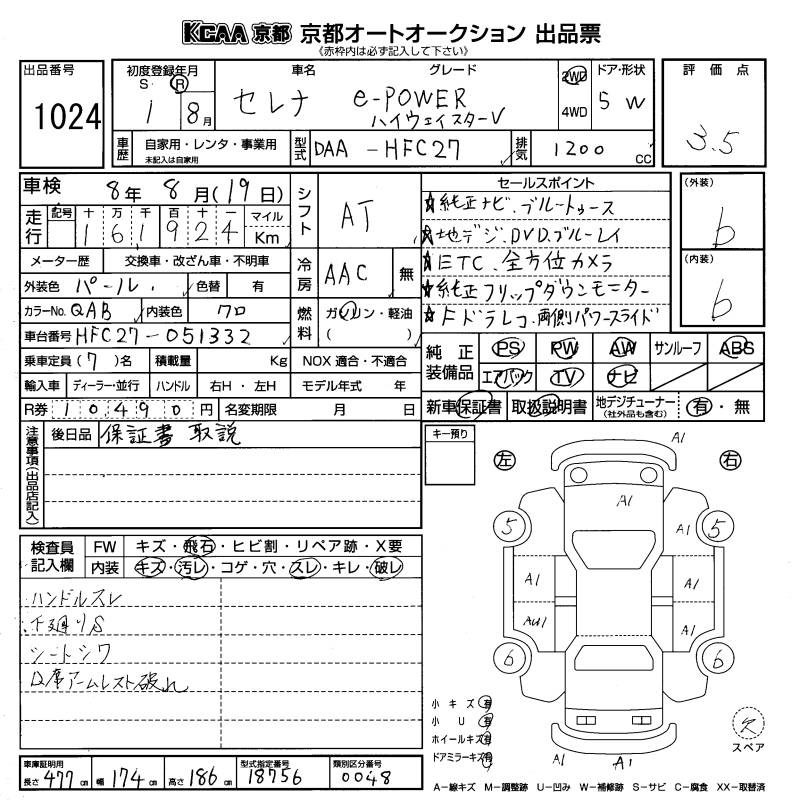 KCAA 京都 京都オートオークション 出品票
《赤枠内は必ず記入して下さい》
出品番号 1024
初度登録年月 S. R 1 8月
車名 セレナ
グレード e-POWER ハイウェイスターV
2WD 4WD
ドア・形状 5 W
評価点 3.5
車歴 自家用・レンタ・事業用 未記入は自家用
型式 DAA-HFC27
排気 1200 CC
車検 8年 8月(19日)
走行 記号 十 万 千 百 十 一 マイル Km
1 6 1 9 2 4
メーター歴 交換車・改ざん車・不明車
外装色 パール 色替 有
カラーNo. QAB 内装色 クロ
車台番号 HFC27-051332
乗車定員(7)名 積載量 Kg
輸入車 ディーラー・並行 ハンドル 右H・左H
R券 10490円 名変期限 月 日
シフト AT
冷房 AAC 無
燃料 ガソリン・軽油 ( )
NOX 適合・不適合
モデル年式 年
セールスポイント
☆純正ナビ.ブルートゥース
☆地デジ.DVD.ブルーレイ
☆ETC.全方位カメラ
☆純正フリップダウンモニター
☆ドラレコ.両側パワースライド
(外装) b
(内装) b
純正装備品 PS PW AW サンルーフ ABS
エアバック TV ナビ
新車保証書 取扱説明書 地デジチューナー (社外品も含む) 有・無
注意事項(出品店記入)
後日品 保証書 取説
キー預り
左 右
A1
A1
5 A1 5
A1 A1
AU1 A1
6 6
A1 A1
検査員記入欄
FW キズ・飛石・ヒビ割・リペア跡・X要
内装 キズ・汚レ・コゲ・穴・スレ・キレ・破レ
ハンドルスレ
下廻りS
シートシワ
Q席アームレスト破れ
小キズ 有
小U 有
ホイールキズ 有
ドアミラーキズ 有
欠
スペア
車庫証明用 長さ 477cm 幅 174cm 高さ 186cm
型式指定番号 18756
類別区分番号 0048
A−線キズ M−調整跡 U−凹み W−補修跡 S−サビ C−腐食 XX−取替済